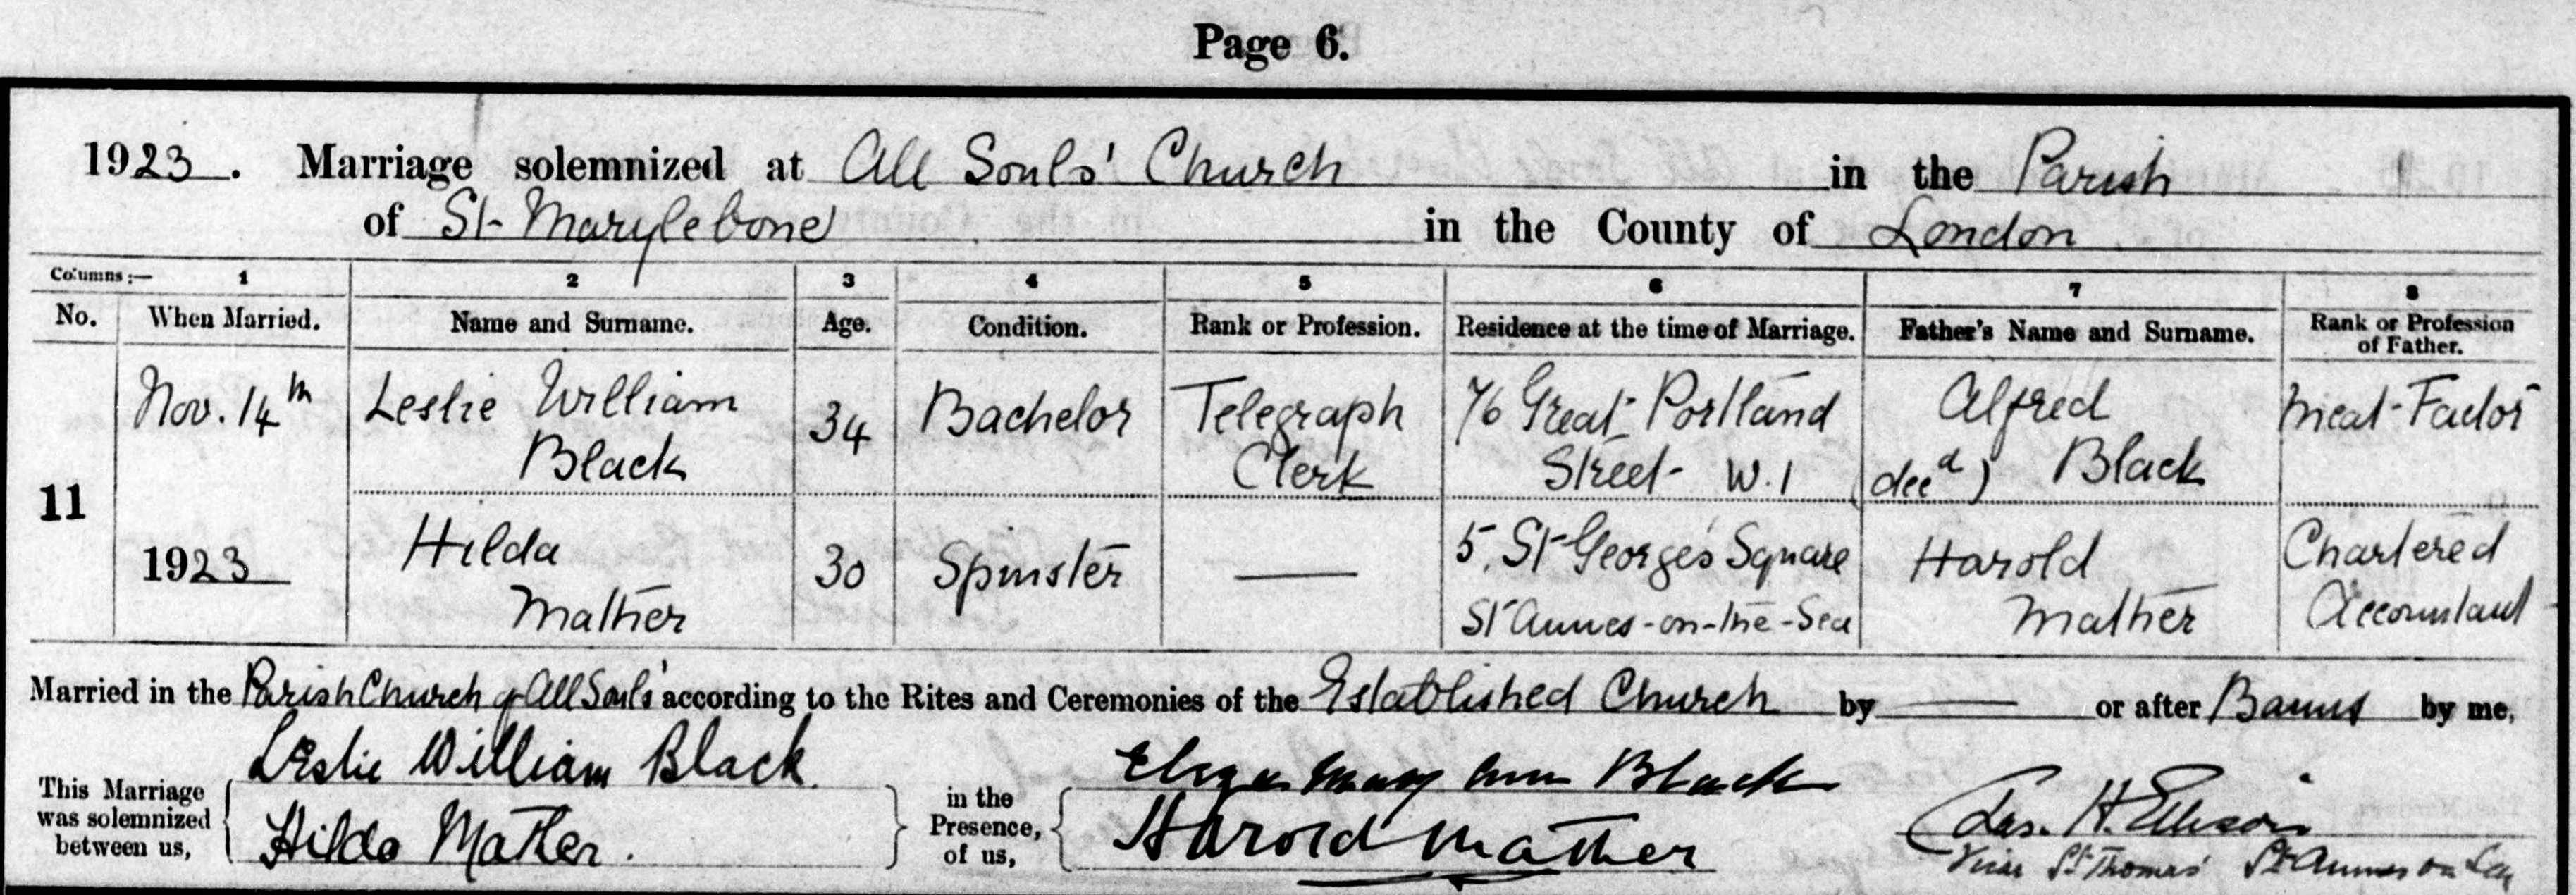 Page 6.
1923. Marriage solemnized at All Souls' Church in the Parish
of St Marylebone in the County of London
Columns:— 1 2 3 4 5 6 7 8
No. When Married. Name and Surname. Age. Condition. Rank or Profession. Residence at the time of Marriage. Father's Name and Surname. Rank or Profession of Father.
11
Nov. 14th
1923
Leslie William
Black
34
Bachelor
Telegraph
Clerk
76 Great Portland
Street W.1
Alfred
(decd) Black
Meat Factor
Hilda
Mather
30
Spinster
—
5, St George's Square
St Annes-on-the-Sea
Harold
Mather
Chartered
Accountant
Married in the Parish Church of All Souls' according to the Rites and Ceremonies of the Established Church by — or after Banns by me,
This Marriage
was solemnized
between us,
Leslie William Black.
Hilda Mather.
in the
Presence,
of us,
Eliza Mary Ann Black
Harold Mather
Jas. H. Ellison
Vicar St Thomas' St Annes on Sea